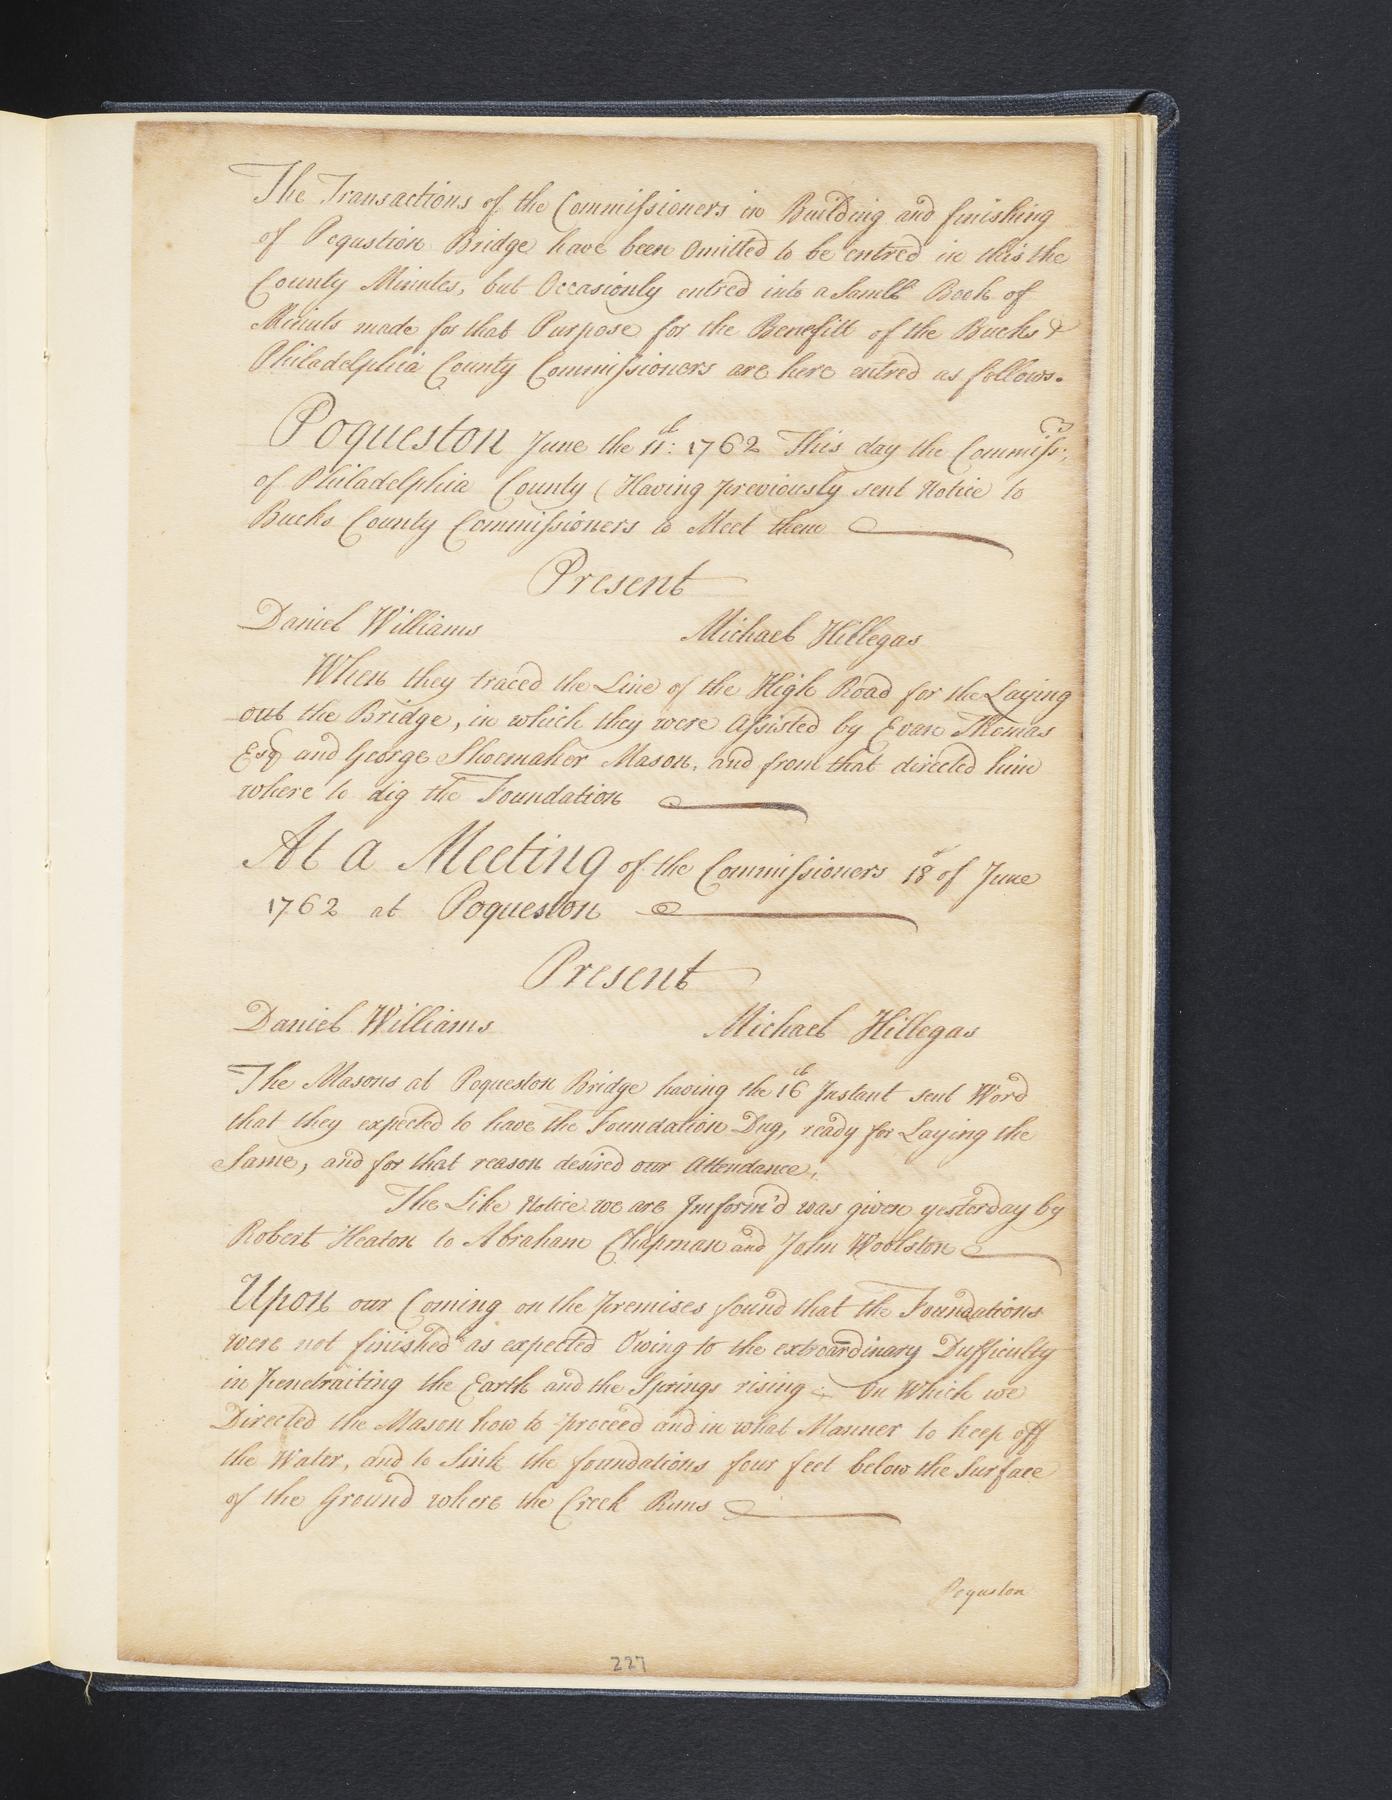 The Transactions of the Commissioners in Building and finishing
of Poqustion Bridge have been Omitted to be entred in this the
County Minutes, but Occasionly entred into a Samll Book of
Minuts made for that Purpose for the Benefitt of the Bucks &
Philadelphia County Commissioners are here entred as follows.
Poqueston June the 11th: 1762 This day the Commiss:
of Philadelphia County (Having previously sent Notice to
Bucks County Commissioners to Meet them
Present
Daniel Williams Michael Hillegas
When they traced the Line of the High Road for the Laying
out the Bridge, in which they were Assisted by Evan Thomas
Esqr and George Shoemaker Mason, and from that directed him
where to dig the Foundation
At a Meeting of the Commissioners 18th of June
1762 at Poqueston
Present
Daniel Williams Michael Hillegas
The Masons at Poqueston Bridge having the 16th Instant sent Word
that they expected to have the Foundation Dug, ready for Laying the
Same, and for that reason desired our Attendance,
The Like Notice we are Inform'd was given yesterday by
Robert Heaton to Abraham Chapman and John Woolston
Upon our Coming on the premises found that the Foundations
were not finished as expected Owing to the extroardinary Dufficulty
in penetraiting the Earth and the Springs rising On Which we
Directed the Mason how to proceed and in what Manner to keep off
the Water, and to Sink the foundations four feet below the Surface
of the Ground where the Creek Runs
Poquston
227